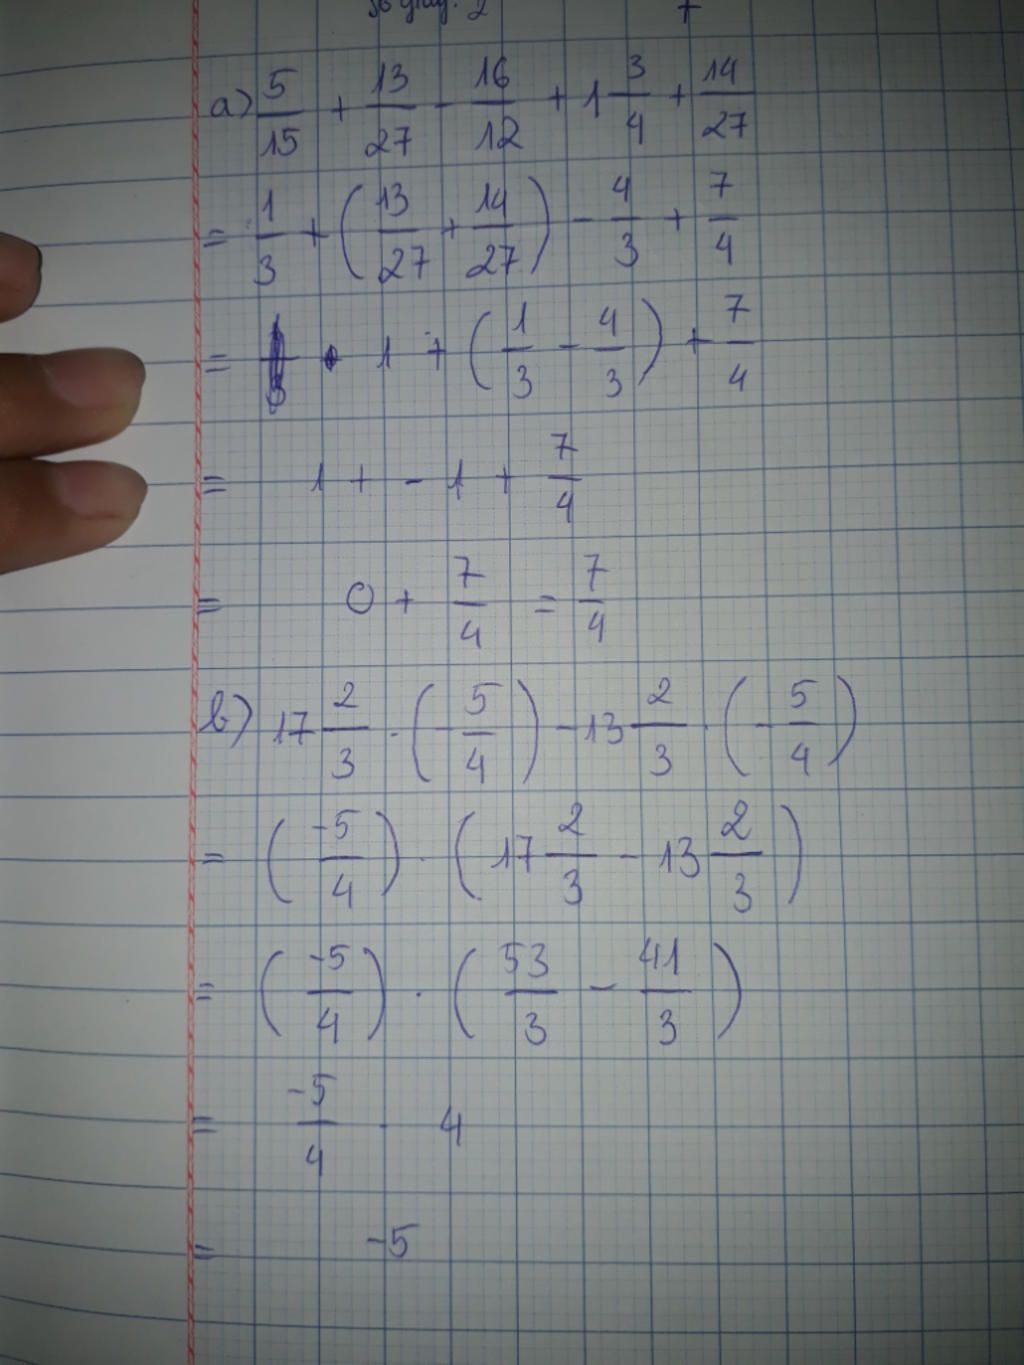 a) 5/15 + 13/27 - 16/12 + 1 3/4 + 14/27
= 1/3 + (13/27 + 14/27) - 4/3 + 7/4
= 1 + (1/3 - 4/3) + 7/4
= 1 + - 1 + 7/4
= 0 + 7/4 = 7/4
b) 17 2/3 . (- 5/4) - 13 2/3 . (- 5/4)
= (-5/4) . (17 2/3 - 13 2/3)
= (-5/4) . (53/3 - 41/3)
= -5/4 . 4
= -5